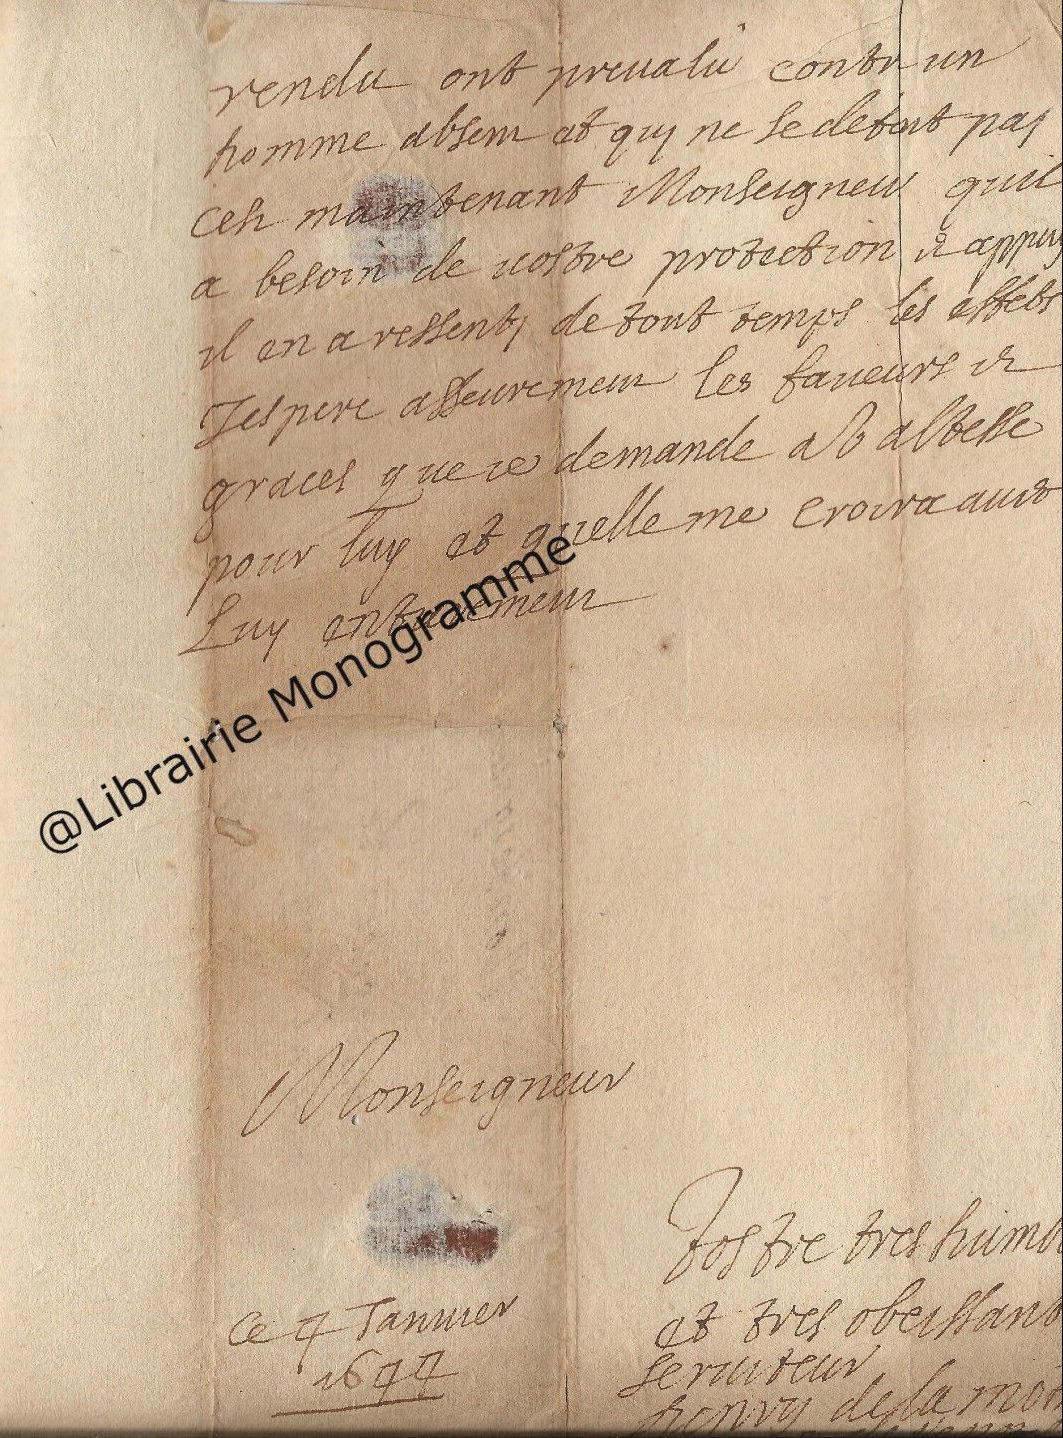 rendu ont preualu contr un
homme absent et quy ne se defent pas
cest maintenant Monseigneur quil
a besoin de uostre protection et appuy
il en a ressenty de tout temps les effets
Jespere asseurement les faueurs et
graces que ie demande a V altesse
pour luy et quelle me croira auec
Luy entierement
@Librairie Monogramme
Monseigneur
Vostre tres humb
et tres obeissant
seruiteur
henry de la mo
ce 4 Januier
1644